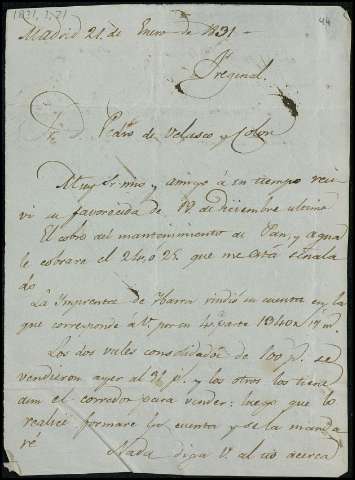 1831, 1, 21
44
Madrid 21. de Enero de 1831-
Fregenal.
Sr. D. Pedro de Velasco y Colon
Muy Sr. mio y amigo á su tiempo reci
vi su favorecida de 19 de diciembre ultimo
El cobro del mantenimiento de Pan, y agua
le cobrare el 24, ó 25 que me está señala
do
La Imprenta de Ibarra rindió su cuenta en la
que corresponde á V. por su 4ª parte 1840
Los dos vales consolidados de 100 p.s se
vendieron ayer al y los otros los tiene
aun el corredor para vender: luego que lo
realice formare la cuenta y se la manda
ré
Nada diga V. al acerca